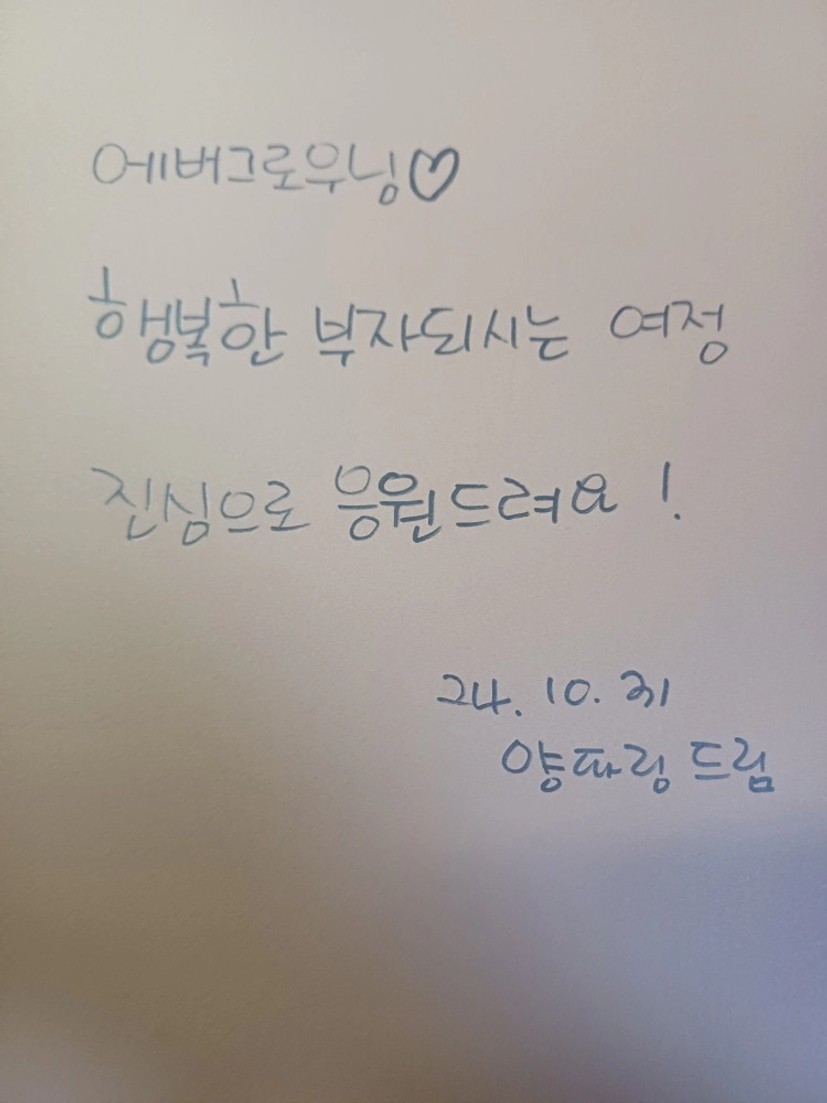 에버그로우님♡
행복한 부자되시는 여정
진심으로 응원드려요!
24. 10. 31
양파링 드림